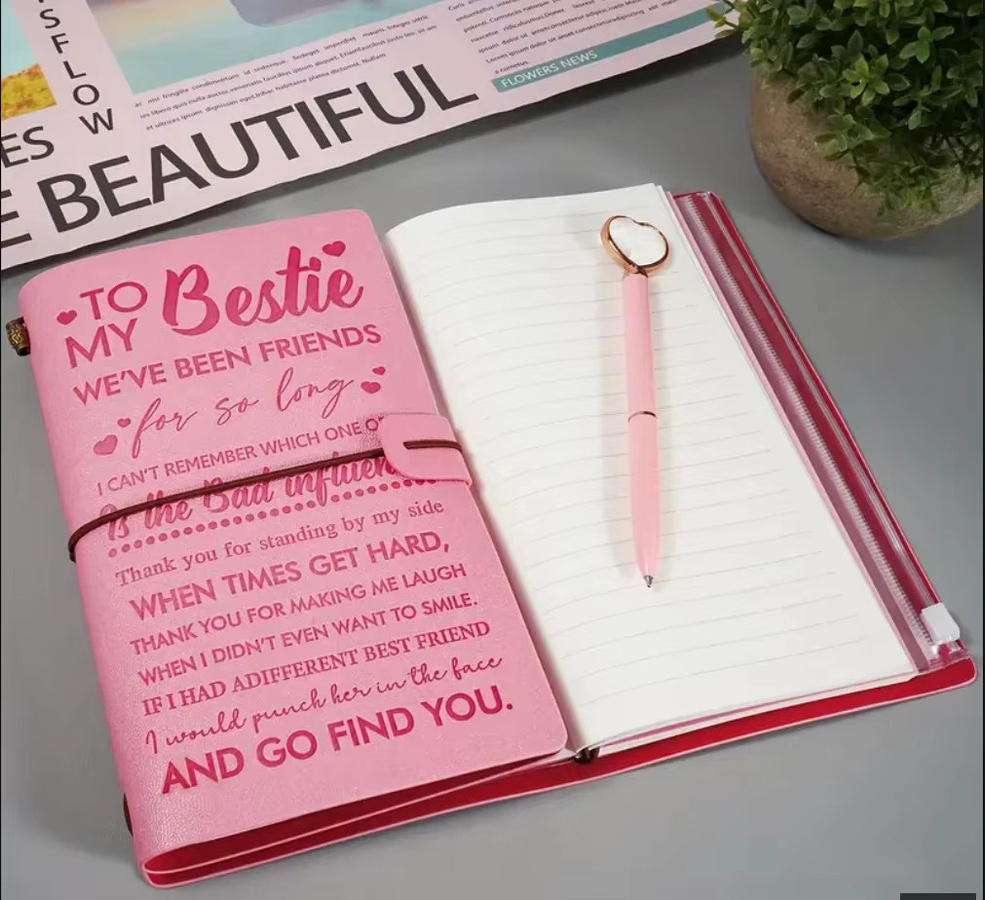 SFLOW
ES
E BEAUTIFUL
FLOWERS NEWS
TO
MY Bestie
WE'VE BEEN FRIENDS
for so long
I CAN'T REMEMBER WHICH ONE
is the Bad
Thank you for standing by my side
WHEN TIMES GET HARD,
THANK YOU FOR MAKING ME LAUGH
WHEN I DIDN'T EVEN WANT TO SMILE.
IF I HAD ADIFFERENT BEST FRIEND
I would punch her in the face
AND GO FIND YOU.